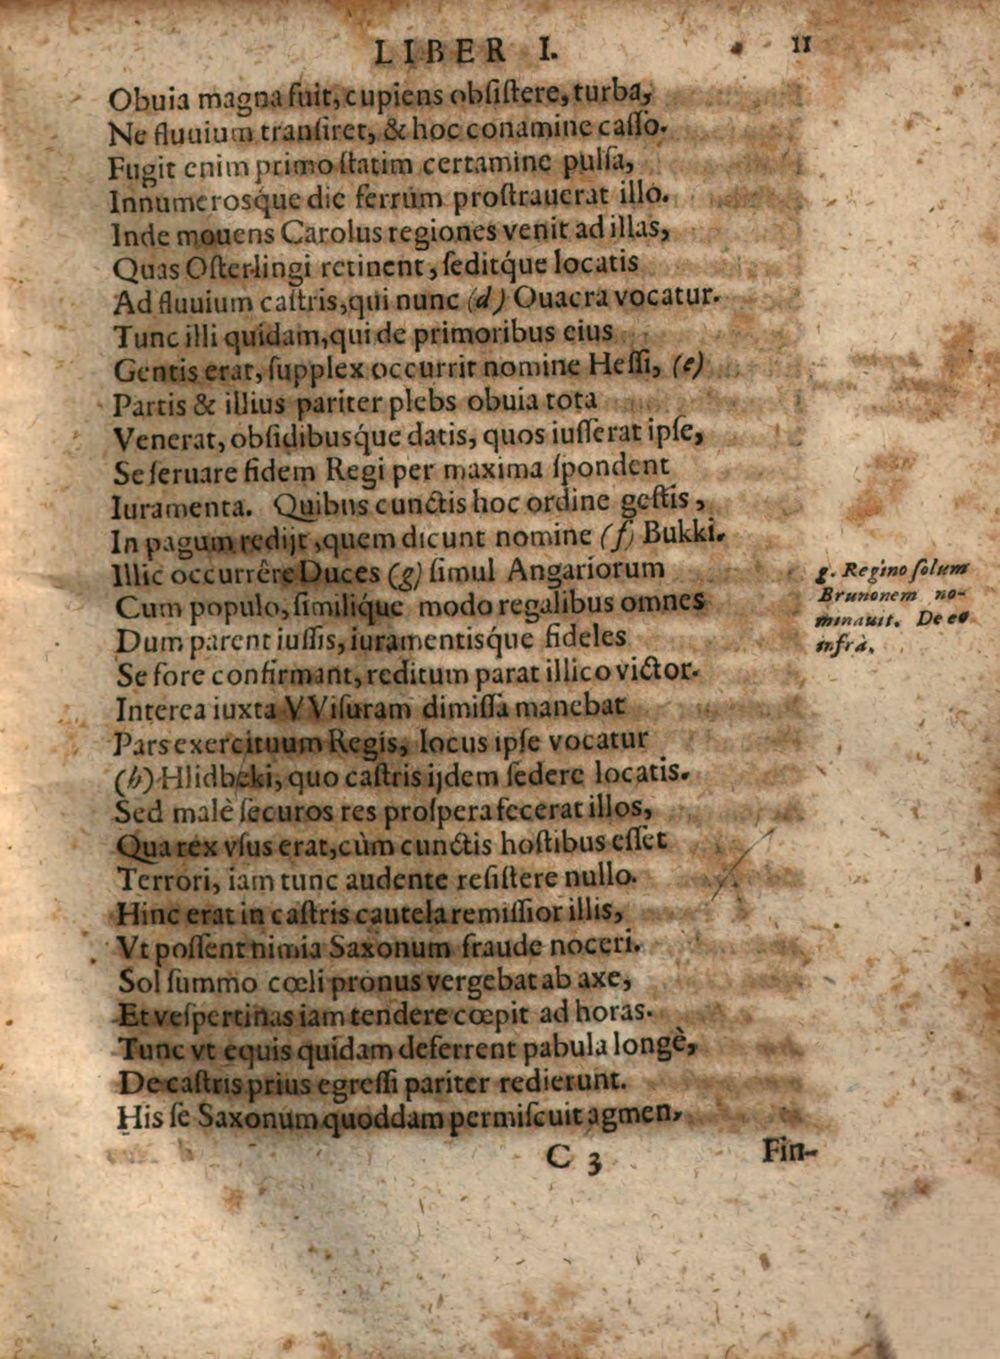 LIBER I. 11
Obuia magna fuit, cupiens obſiſtere, turba,
Ne fluuium tranſiret, & hoc conamine caſſo.
Fugit enim primo ſtatim certamine pulſa,
Innumerosq́ue die ferrum proſtrauerat illo.
Inde mouens Carolus regiones venit ad illas,
Quas Oſterlingi retinent, ſeditq́ue locatis
Ad fluuium caſtris, qui nunc (d) Ouacra vocatur.
Tunc illi quidam, qui de primoribus eius
Gentis erat, ſupplex occurrit nomine Heſſi, (e)
Partis & illius pariter plebs obuia tota
Venerat, obſidibusq́ue datis, quos iuſſerat ipſe,
Se ſeruare fidem Regi per maxima ſpondent
Iuramenta. Quibus cunctis hoc ordine geſtis,
In pagum redijt, quem dicunt nomine (f) Bukki.
Illic occurrêre Duces (g) ſimul Angariorum
Cum populo, ſimiliq́ue modo regalibus omnes
Dum parent iuſſis, iuramentisq́ue fideles
Se fore confirmant, reditum parat illico victor.
Interea iuxta VViſuram dimiſſa manebat
Pars exercituum Regis, locus ipſe vocatur
(h) Hlidbeki, quo caſtris ijdem ſedere locatis.
Sed malè ſecuros res proſpera fecerat illos,
Qua rex vſus erat, cùm cunctis hoſtibus eſſet
Terrori, iam tunc audente reſiſtere nullo.
Hinc erat in caſtris cautela remiſſior illis,
Vt poſſent nimia Saxonum fraude noceri.
Sol ſummo cœli pronus vergebat ab axe,
Et veſpertinas iam tendere cœpit ad horas.
Tunc vt equis quidam deferrent pabula longè,
De caſtris prius egreſſi pariter redierunt.
His ſe Saxonum quoddam permiſcuit agmen,
C 3 Fin-
g. Regino ſolum
Brunonem no-
minauit. De eo
infrà.